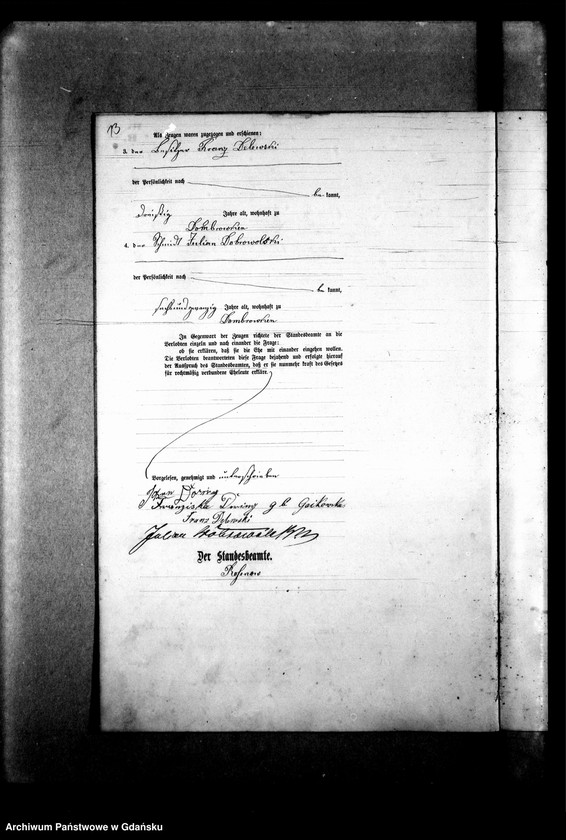 13
Als Zeugen waren zugezogen und erschienen:
3. der Besitzer Franz Delewski
der Persönlichkeit nach
be kannt,
dreißig Jahre alt, wohnhaft zu
Dombrowken
4. der Schmidt Julian Dobrowolski
der Persönlichkeit nach
be kannt,
sechsundzwanzig Jahre alt, wohnhaft zu
Dombrowken
In Gegenwart der Zeugen richtete der Standesbeamte an die
Verlobten einzeln und nach einander die Frage:
ob sie erklären, daß sie die Ehe mit einander eingehen wollen.
Die Verlobten beantworteten diese Frage bejahend und erfolgte hierauf
der Ausspruch des Standesbeamten, daß er sie nunmehr kraft des Gesetzes
für rechtmäßig verbundene Eheleute erkläre.
Vorgelesen, genehmigt und unterschrieben
Franziska
Franz
Julian
Der Standesbeamte.
Archiwum Państwowe w Gdańsku